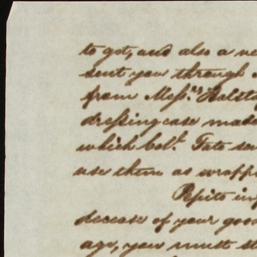 to got, and also a ne
sent you through
from Mess.rs Ralsto
dressing case made
which Col.l Tate sen
use them as wrapp
Pepita inf
decease of your good
ago, you must st